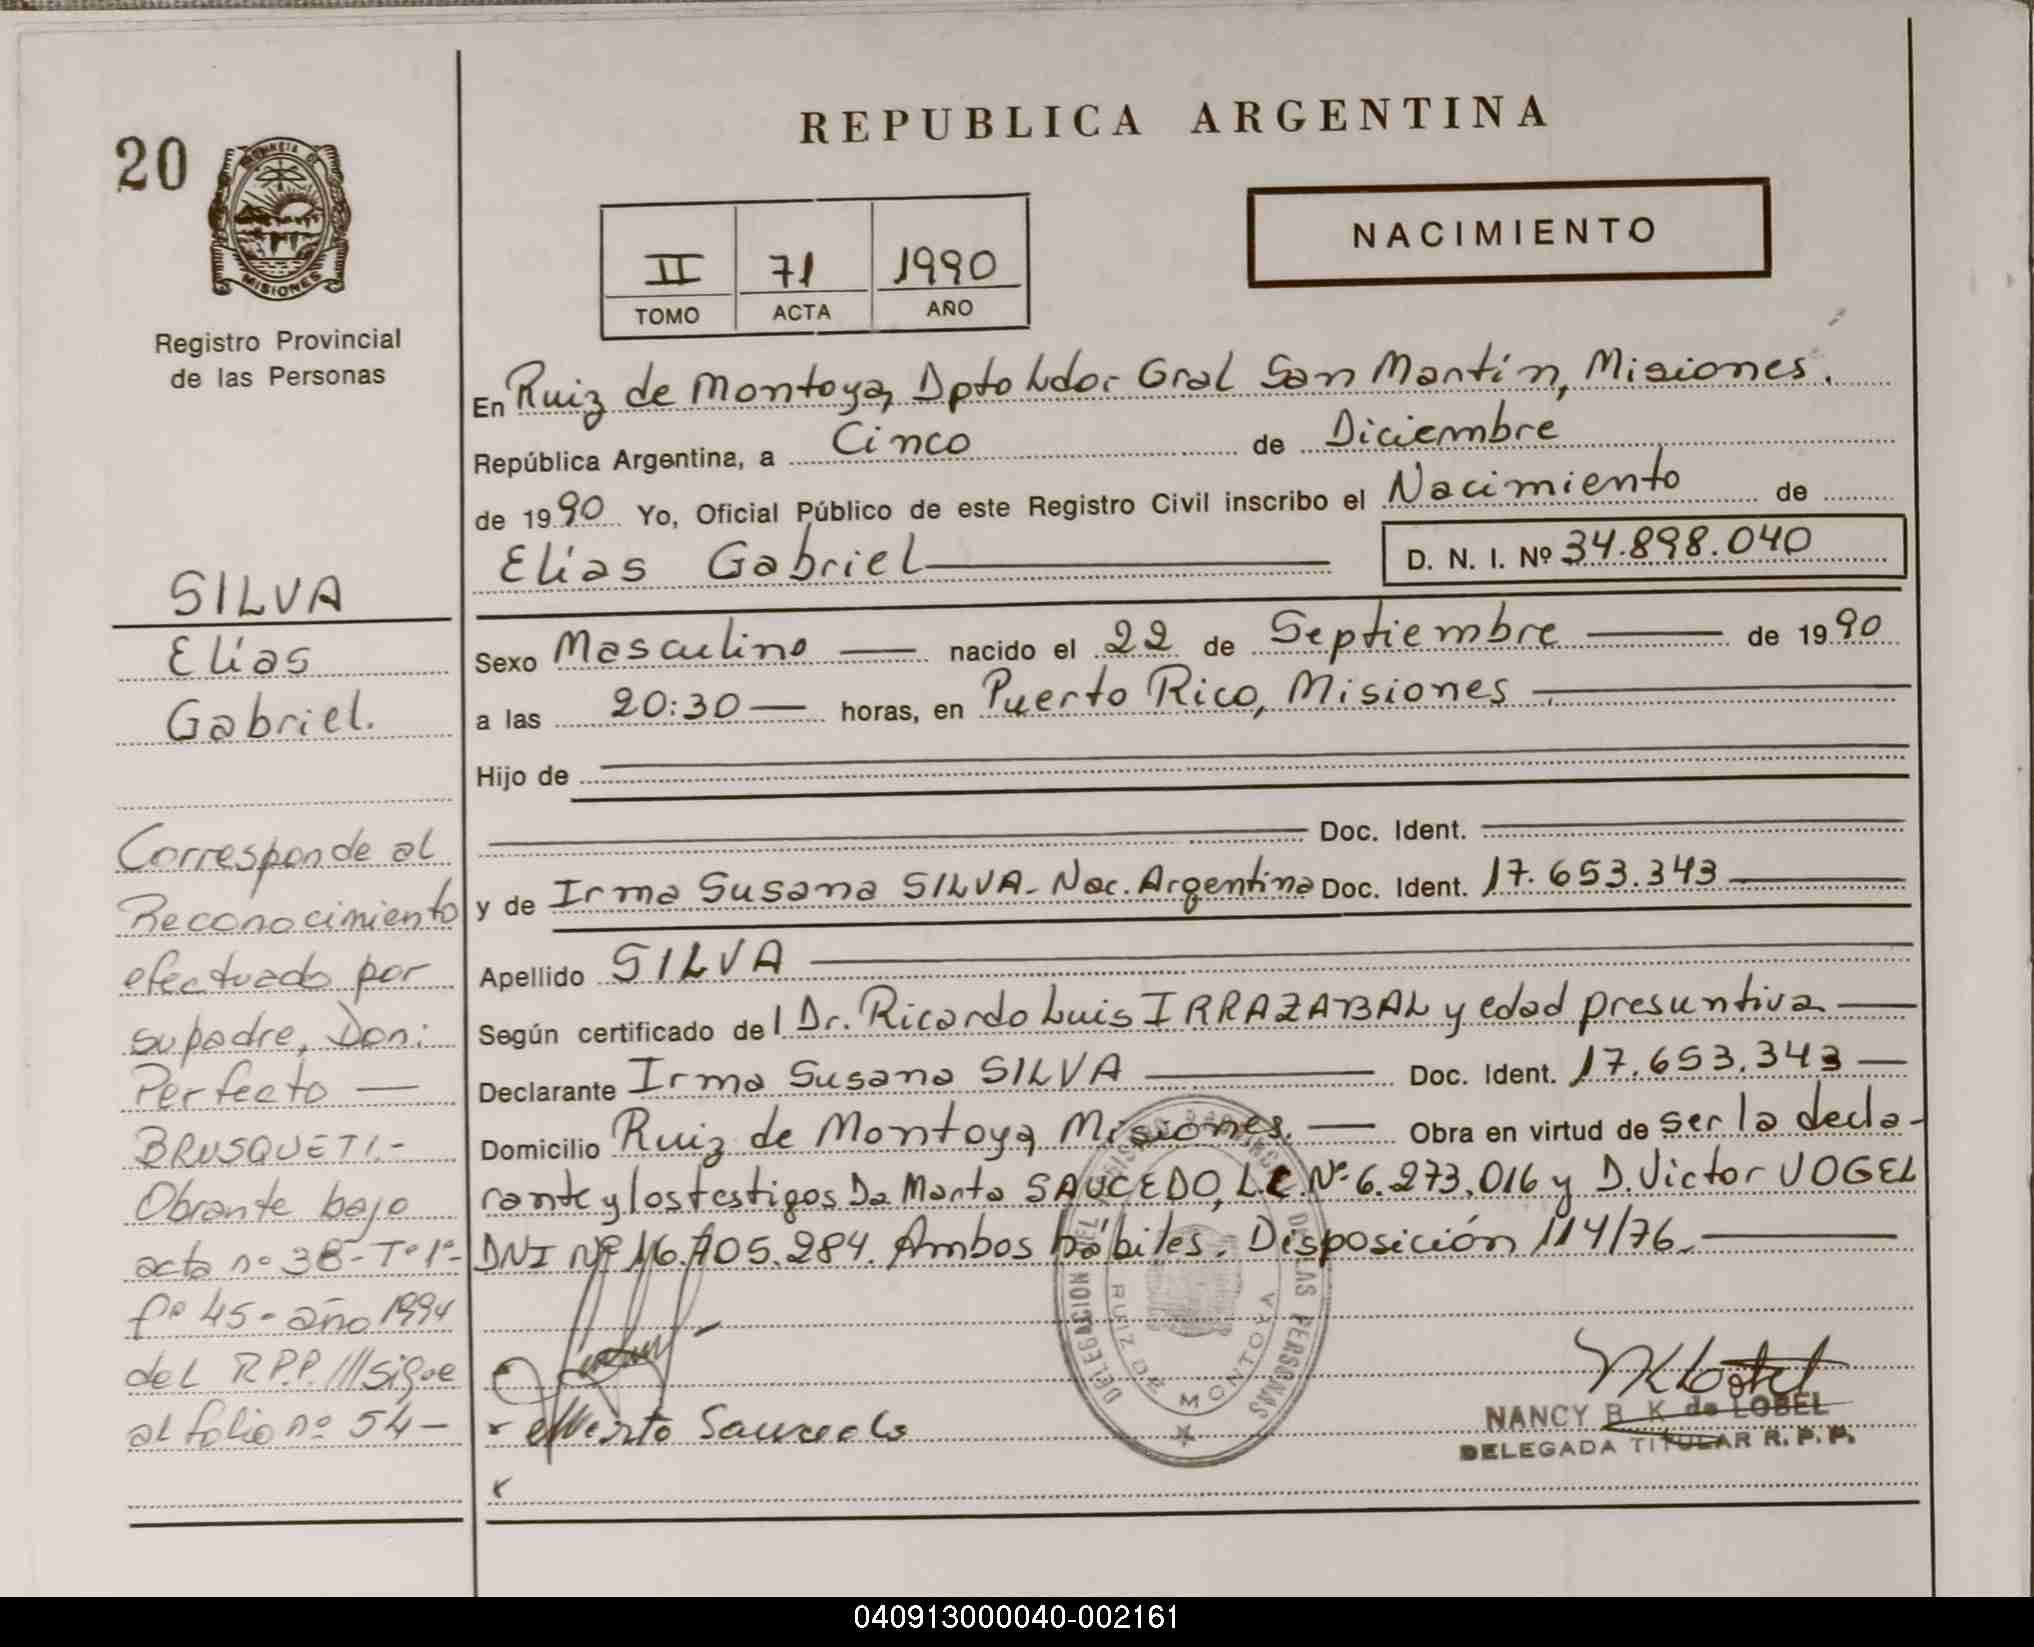 REPUBLICA ARGENTINA
20
PROVINCIA DE
MISIONES
Registro Provincial
de las Personas
NACIMIENTO
II 71 1990
TOMO ACTA AÑO
En Ruiz de Montoya, Dpto Ldor Gral San Martín, Misiones.
República Argentina, a Cinco de Diciembre
de 1990 Yo, Oficial Público de este Registro Civil inscribo el Nacimiento de
Elías Gabriel D. N. I. Nº 34.898.040
Sexo Masculino nacido el 22 de Septiembre de 1990
a las 20:30 horas, en Puerto Rico, Misiones.
Hijo de
Doc. Ident.
y de Irma Susana SILVA - Nac. Argentina Doc. Ident. 17.653.343
Apellido SILVA
Según certificado del Dr. Ricardo Luis IRRAZABAL y edad presuntiva
Declarante Irma Susana SILVA Doc. Ident. 17.653.343
Domicilio Ruiz de Montoya, Misiones. Obra en virtud de ser la decla-
rante y los testigos Da. Marta SAUCEDO, L.C. Nº 6.273.016 y D. Victor VOGEL
DNI Nº 16.705.284. Ambos hábiles. Disposición 114/76.
SILVA
Elías
Gabriel.
Corresponde al
Reconocimiento
efectuado por
su padre, Don:
Perfecto
BRUSQUETI.-
Obrante bajo
acta nº 38 - Tº 1º-
fº 45 - año 1994
del R.P.P. /// sigue
al folio nº 54 -
DELEGACION
DE LAS PERSONAS
RUIZ DE MONTOYA
Saucedo
NANCY B. K. de LOBEL
DELEGADA TITULAR R. P. P.
040913000040-002161